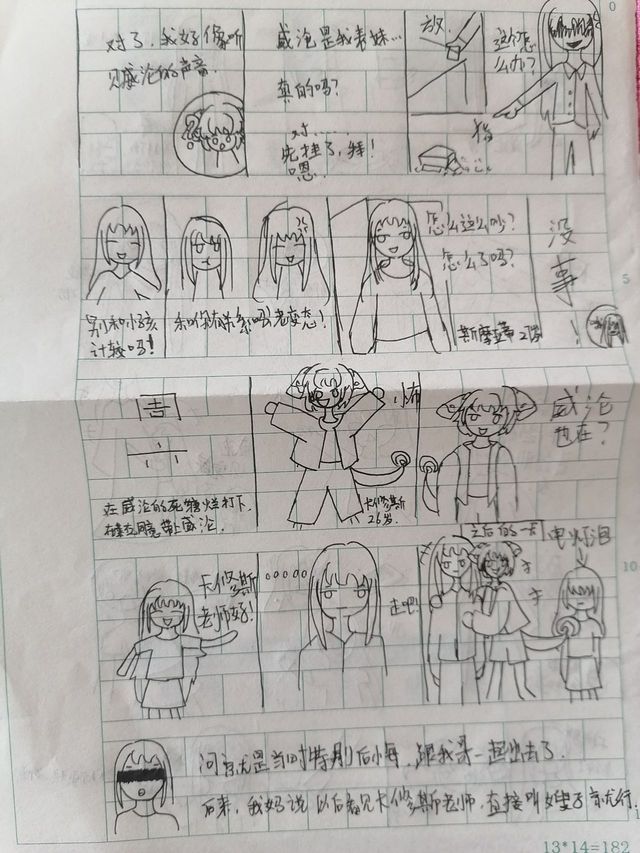 0
对了，我好像听
见威沦的声音.
威沦是我表妹…
真的吗？
对……
先挂了，拜！
嗯.
放
这个怎
么办？
指
别和小孩
计较吗！
老变态！
怎么这么吵？
怎么了吗？
斯摩蓝蒂 27岁
没
事
！
5
在威沦的死缠烂打下
带上威沦.
卡修斯
26岁.
威沦
也在？
卡修斯
老师好！
走吧！
之后的一天
电灯泡
10
问就是当时特别后悔，跟我哥一起出去了.
后来，我妈说以后看见卡修斯老师，直接叫嫂子就行.
13*14=182